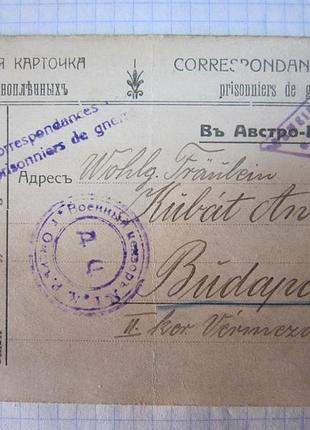 Я КАРТОЧКА
CORRESPONDAN
НОПЛѢННЫХЪ
prisonniers de g
orrespondances
prisonniers de guerre
Въ Австро-
Адресъ
Wohlg. Fräulein
Kubát An
Budap
II. ker Vérmező
Военный цензоръ
Д Ц